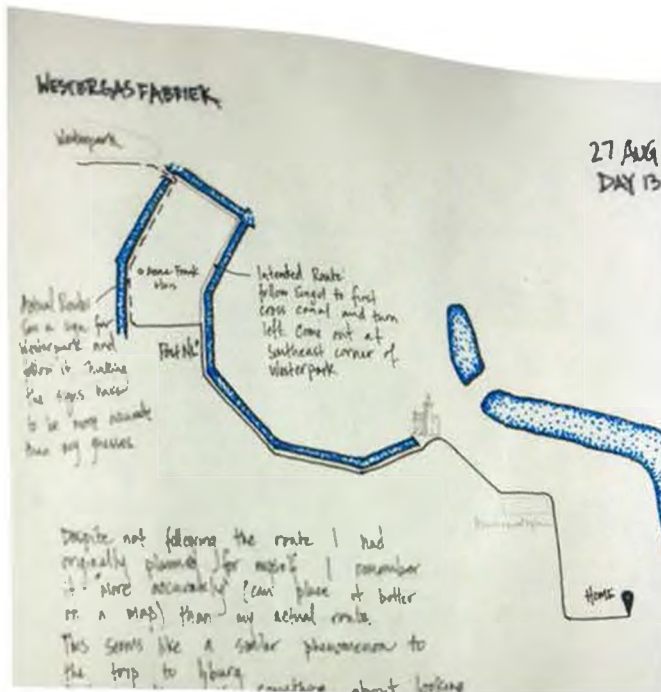 WESTERGASFABRIEK
Westerpark
27 AUG
DAY 13
Anne Frank
Huis
Intended Route:
follow Singel to first
cross canal and turn
left. Come out at
Southeast corner of
Westerpark.
Actual Route:
Saw a sign for
Westerpark and
follow it
the signs
to be more accurate
than my guesses.
HOME
Despite not following the route I had
originally planned for myself I remember
it "more accurately" (can place it better
on a map) than my actual route.
This seems like a similar phenomenon to
the trip to Ijburg
something about looking